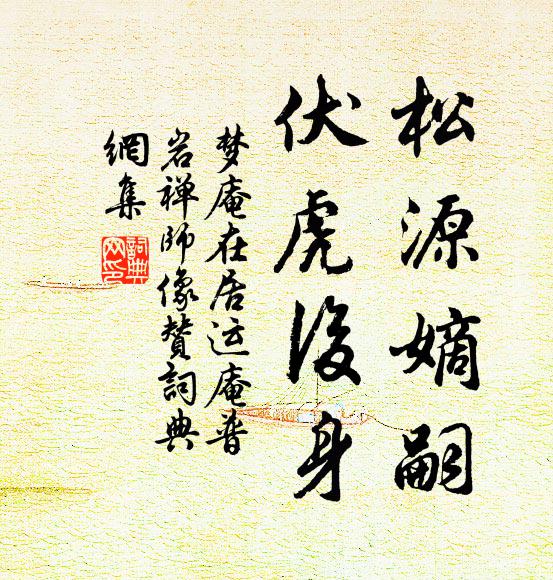 松源嫡嗣
伏虎後身
梦庵在居运庵普
岩禅师像赞詞典
網集
詞典
网印